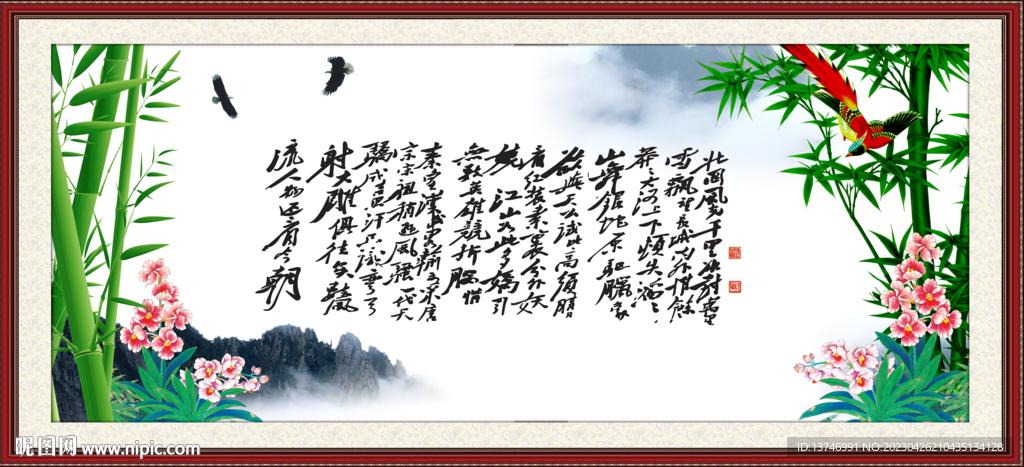 北國風光千里冰封萬里
雪飄望長城內外惟餘
莽莽大河上下頓失滔滔
山舞銀蛇原馳臘象
欲與天公試比高須晴日
看紅裝素裹分外妖
嬈江山如此多嬌引
無數英雄競折腰惜
秦皇漢武略輸文采唐
宗宋祖稍遜風騷一代天
驕成吉思汗只識彎弓
射大雕俱往矣數風
流人物還看今朝
昵图网 www.nipic.com
ID:13746991 NO:20230426210435134128